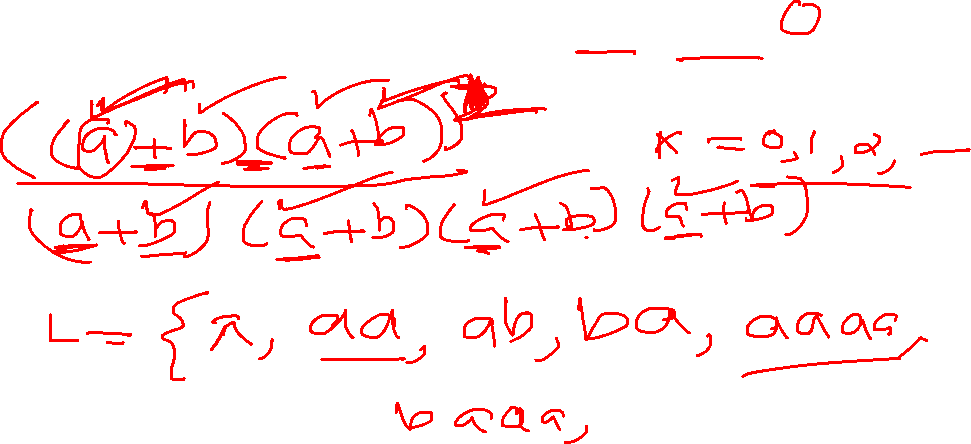 — — 0
((a)+b)(a+b))*
K = 0,1,2, —
(a+b) (a+b)(a+b) (a+b)
L = {λ, aa, ab, ba, aaaa,
baaa,